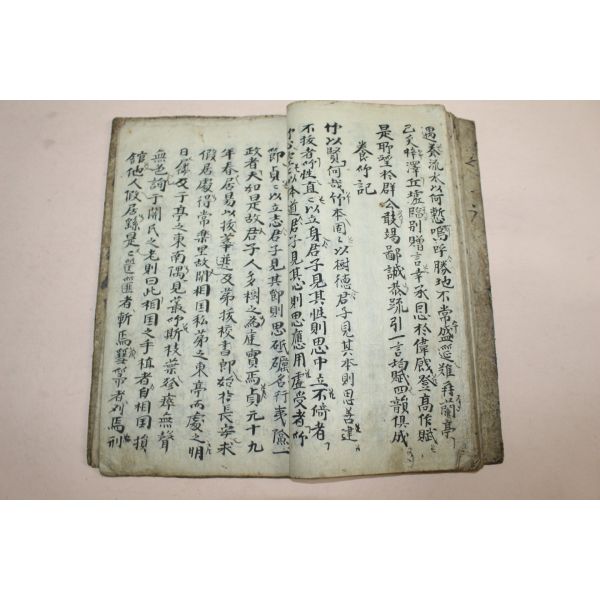 遇奏流水以何慙嗚呼勝地不常盛筵難再蘭亭
已矣梓澤丘墟臨別贈言幸承恩於偉餞登高作賦
是所望於群公敢場鄙誠恭疏引一言均賦四韻俱成
養竹記
竹以賢何哉竹本固〻以樹德君子見其本則思善建
不拔者竹性直〻以立身君子見其性則思中立不倚者
竹心空〻以本道君子見其心則思應用虛受者竹
節貞〻以立志君子見其節則思砥礪名行夷險一
政者夫如是故君子人多樹之為庭實焉貞元十九
年春居易以拔萃選及第拔校書郎始於長安求
假居處得常樂里故關相國私第之東亭而處之明
日屨及于亭之東南隅見叢竹斯枝葉殄瘁無聲
無色詢于關氏之老則曰此相國之手植者自相國捐
館他人假居繇是筐篚者斬焉篲箒者刈焉刑